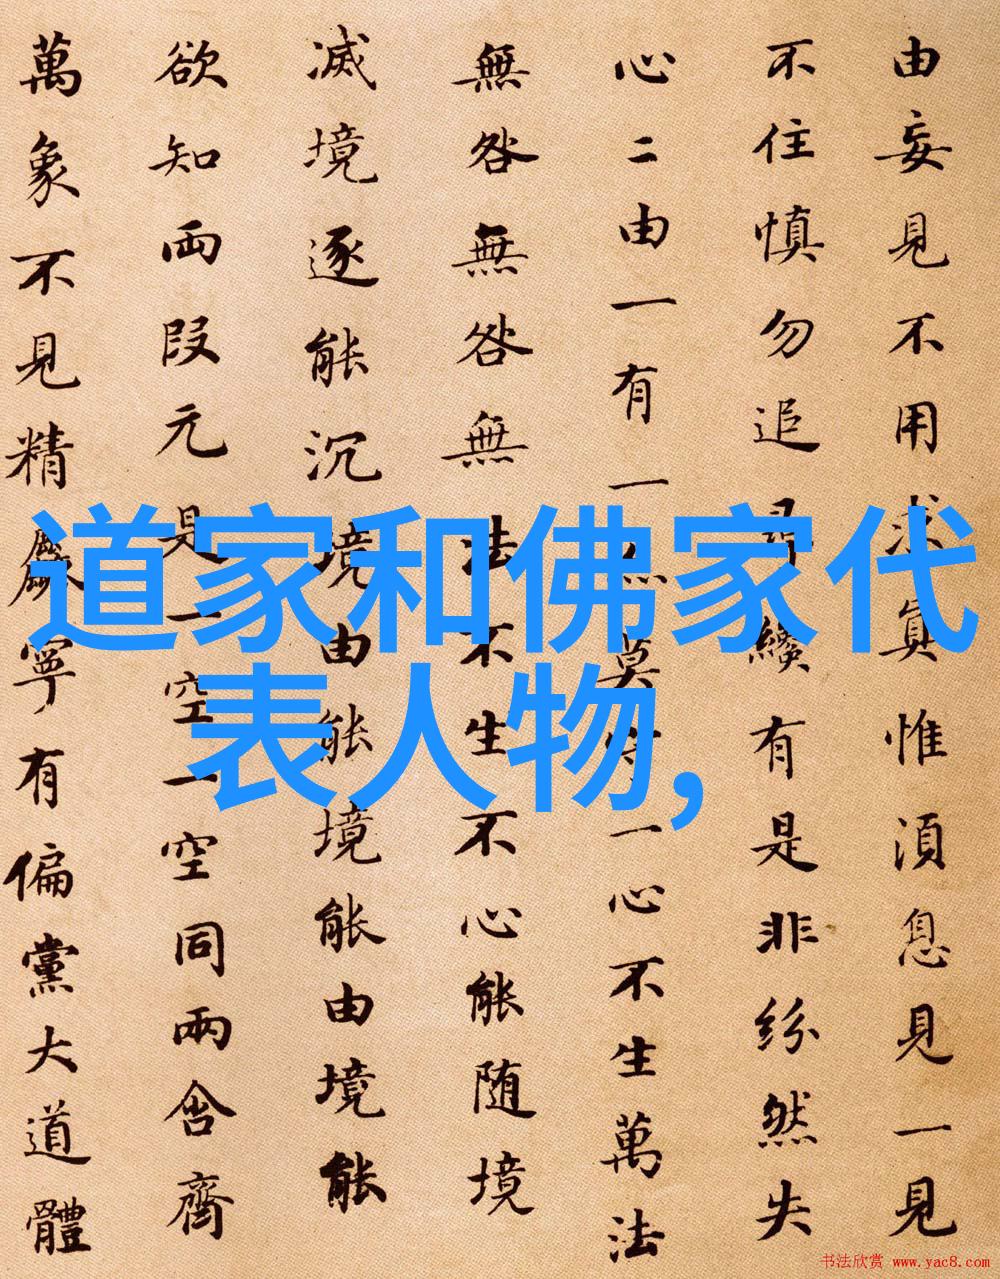 由妄見不用求真惟湏息見一見
不住慎勿追尋纔有是非紛然失
心二由一有一亦莫守一心不生萬法
無咎無咎無法不生不心能随境
滅境逐能沉境由能境能由境能
欲知兩段元是一空一空同兩含齊
萬象不見精麤寧有偏黨大道體
道家和佛家代
表人物，
书法欣赏 www.yac8.com